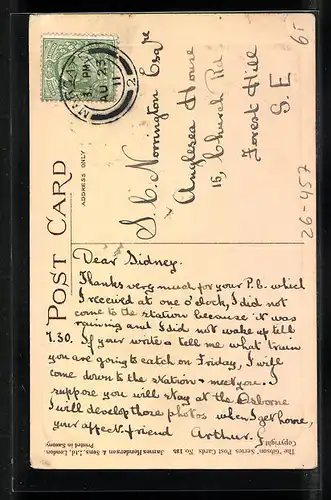 MARGATE
3 PM
AU 23
11
2
6/-
26-457
POST CARD
ADDRESS ONLY
S. C. Norrington Esqre
Anglesea House
15, Church Rd.
Forest Hill
S.E
Dear Sidney.
Thanks very much for your P.C. which
I received at one o'clock, I did not
come to the station because it was
raining and I did not wake up till
7.30. If your write & tell me what train
you are going to catch on Friday, I will
come down to the station & meet you. I
suppose you will stay at the Osborne
I will develop those photos when I get home,
your affect. friend Arthur.
The "Gibson" Series Post Cards No. 125
James Henderson & Sons, Ltd., London.
Copyright
Printed in Saxony